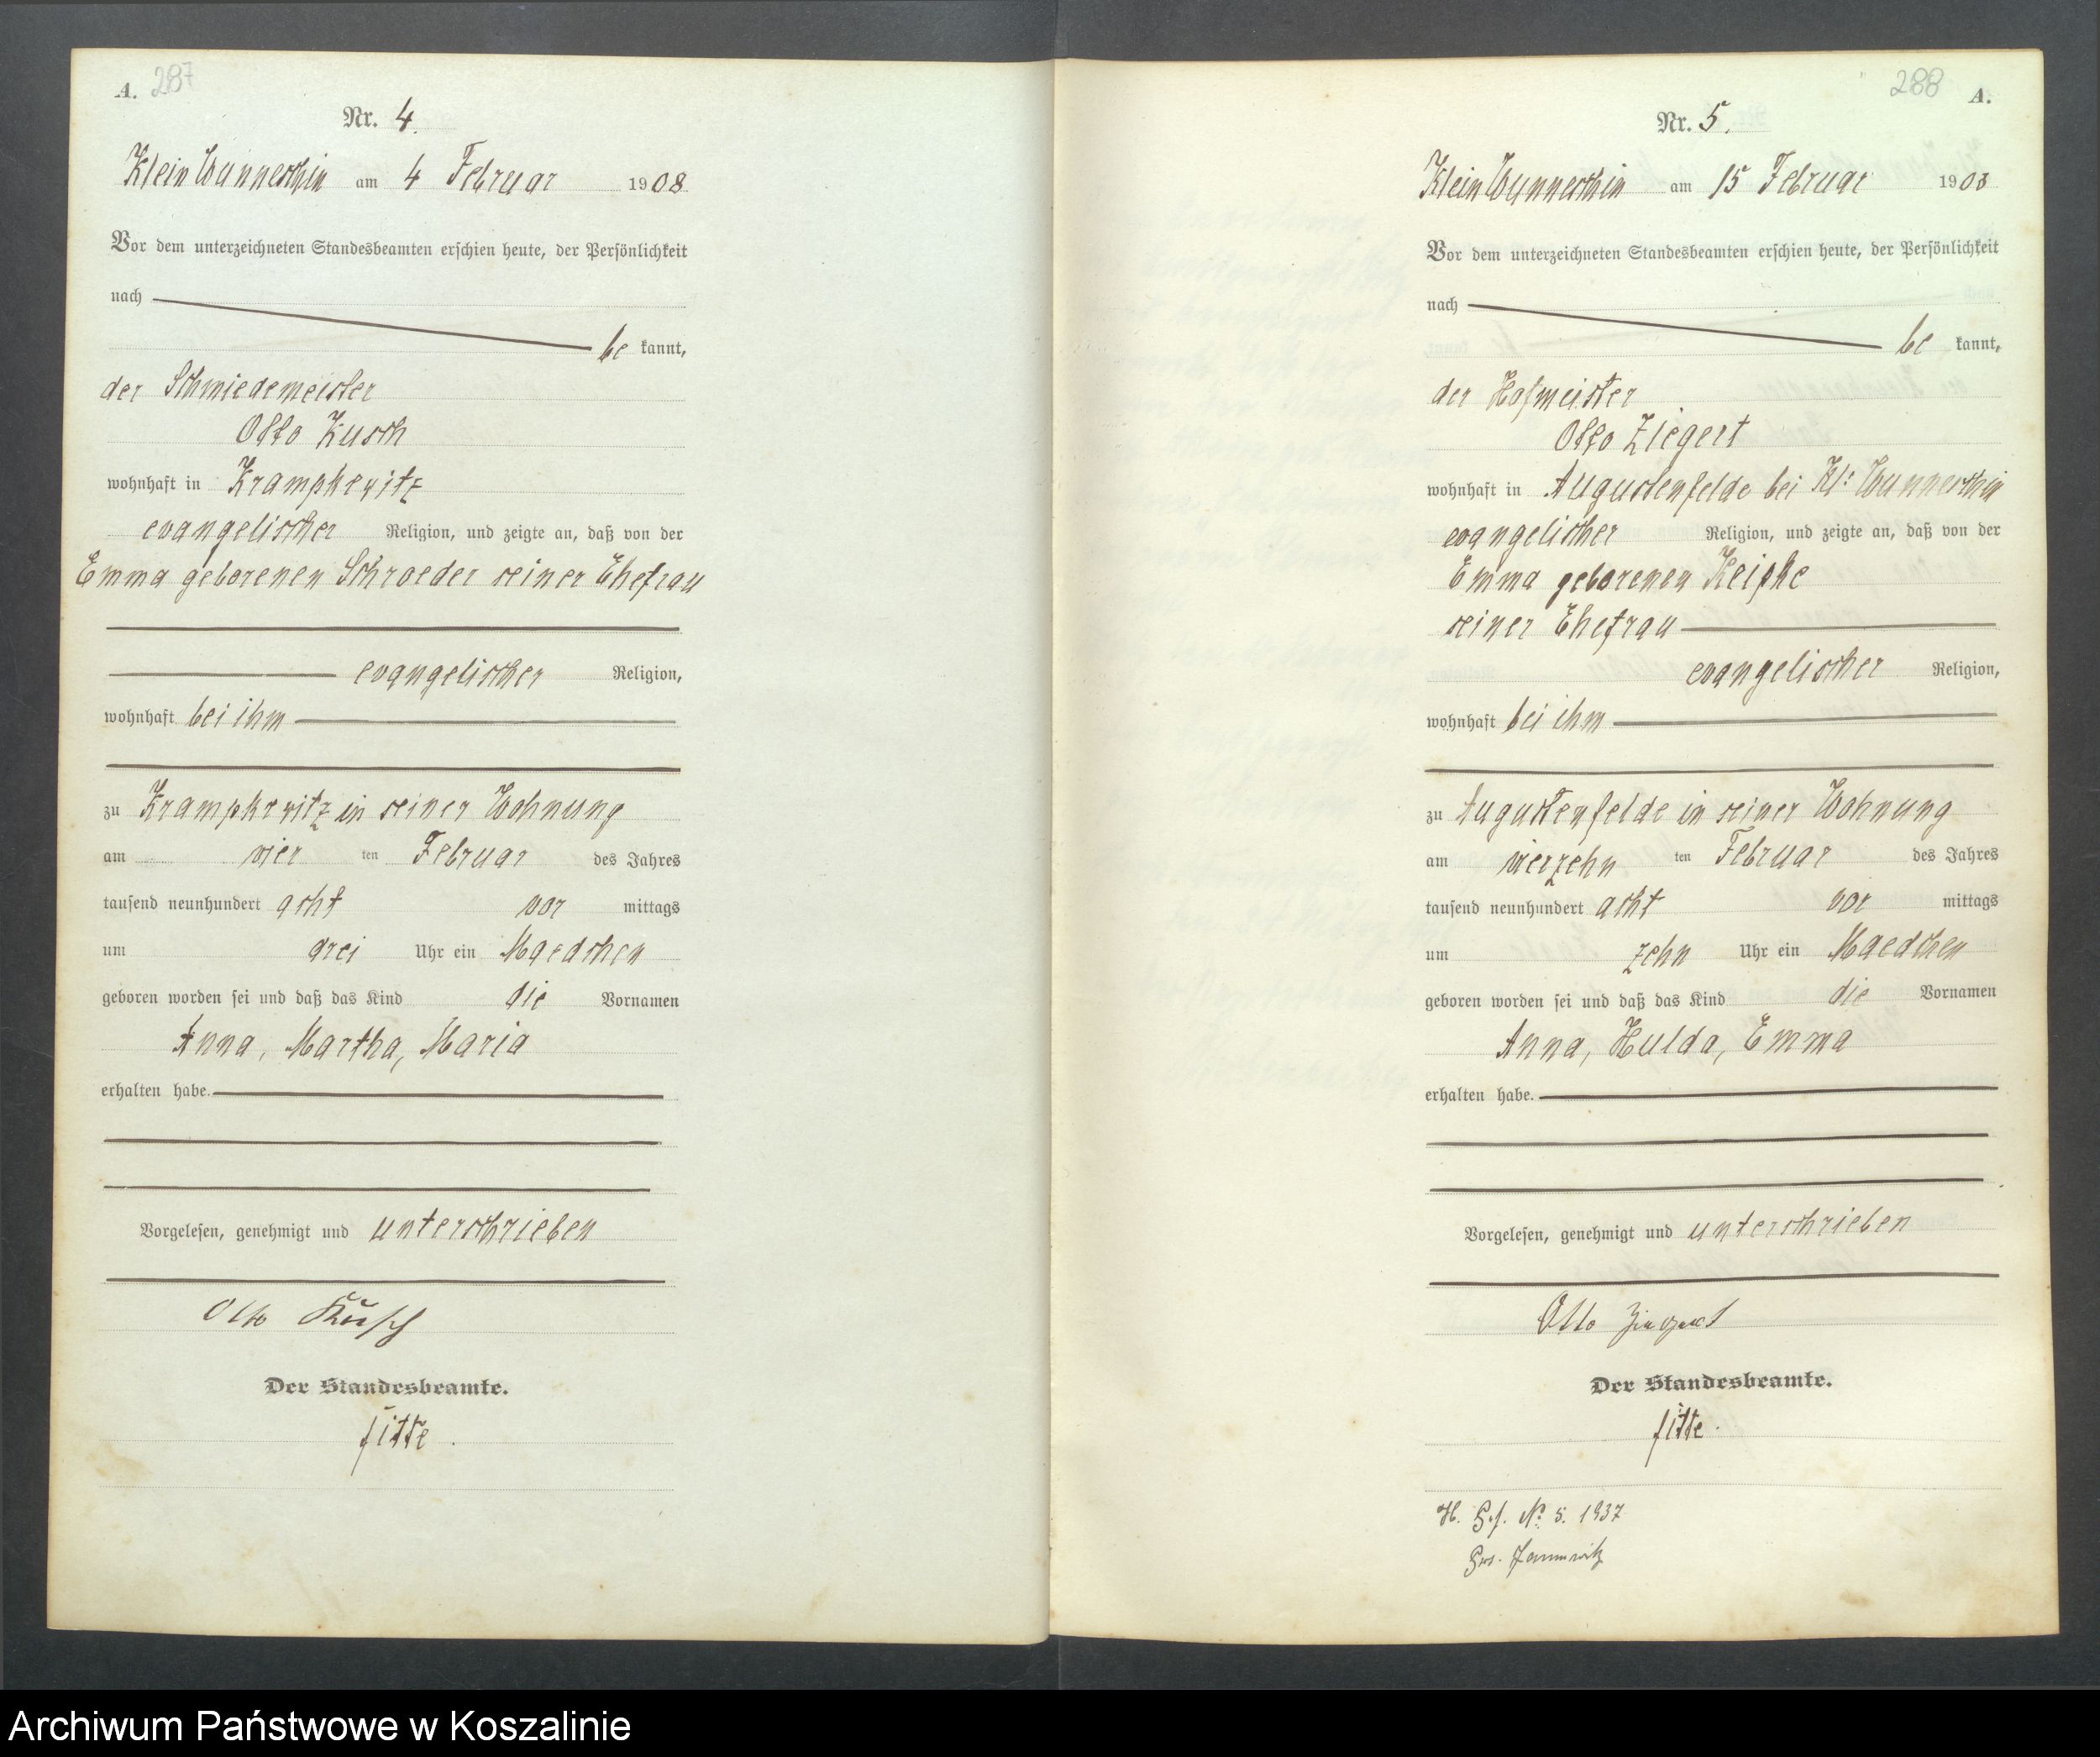 A. 287
Nr. 4.
Klein Wunneschin am 4 Februar 1908
Vor dem unterzeichneten Standesbeamten erschien heute, der Persönlichkeit
nach
be kannt,
der Schmiedemeister
Otto Kusch
wohnhaft in Krampkewitz
evangelischer Religion, und zeigte an, daß von der
Emma geborenen Schroeder seiner Ehefrau
evangelischer Religion,
wohnhaft bei ihm
zu Krampkewitz in seiner Wohnung
am vier ten Februar des Jahres
tausend neunhundert acht vor mittags
um drei Uhr ein Maedchen
geboren worden sei und daß das Kind die Vornamen
Anna, Martha, Maria
erhalten habe.
Vorgelesen, genehmigt und unterschrieben
Otto Kusch
Der Standesbeamte.
288 A.
Nr. 5.
Klein Wunneschin am 15 Februar 1908
Vor dem unterzeichneten Standesbeamten erschien heute, der Persönlichkeit
nach
be kannt,
der Hofmeister
Otto Ziegert
wohnhaft in Augustenfelde bei Kl: Wunneschin
evangelischer Religion, und zeigte an, daß von der
Emma geborenen Reipke
seiner Ehefrau
evangelischer Religion,
wohnhaft bei ihm
zu Augustenfelde in seiner Wohnung
am vierzehn ten Februar des Jahres
tausend neunhundert acht vor mittags
um zehn Uhr ein Maedchen
geboren worden sei und daß das Kind die Vornamen
Anna, Hulda, Emma
erhalten habe.
Vorgelesen, genehmigt und unterschrieben
Otto Ziegert
Der Standesbeamte.
H. No 5. 1937
Archiwum Państwowe w Koszalinie